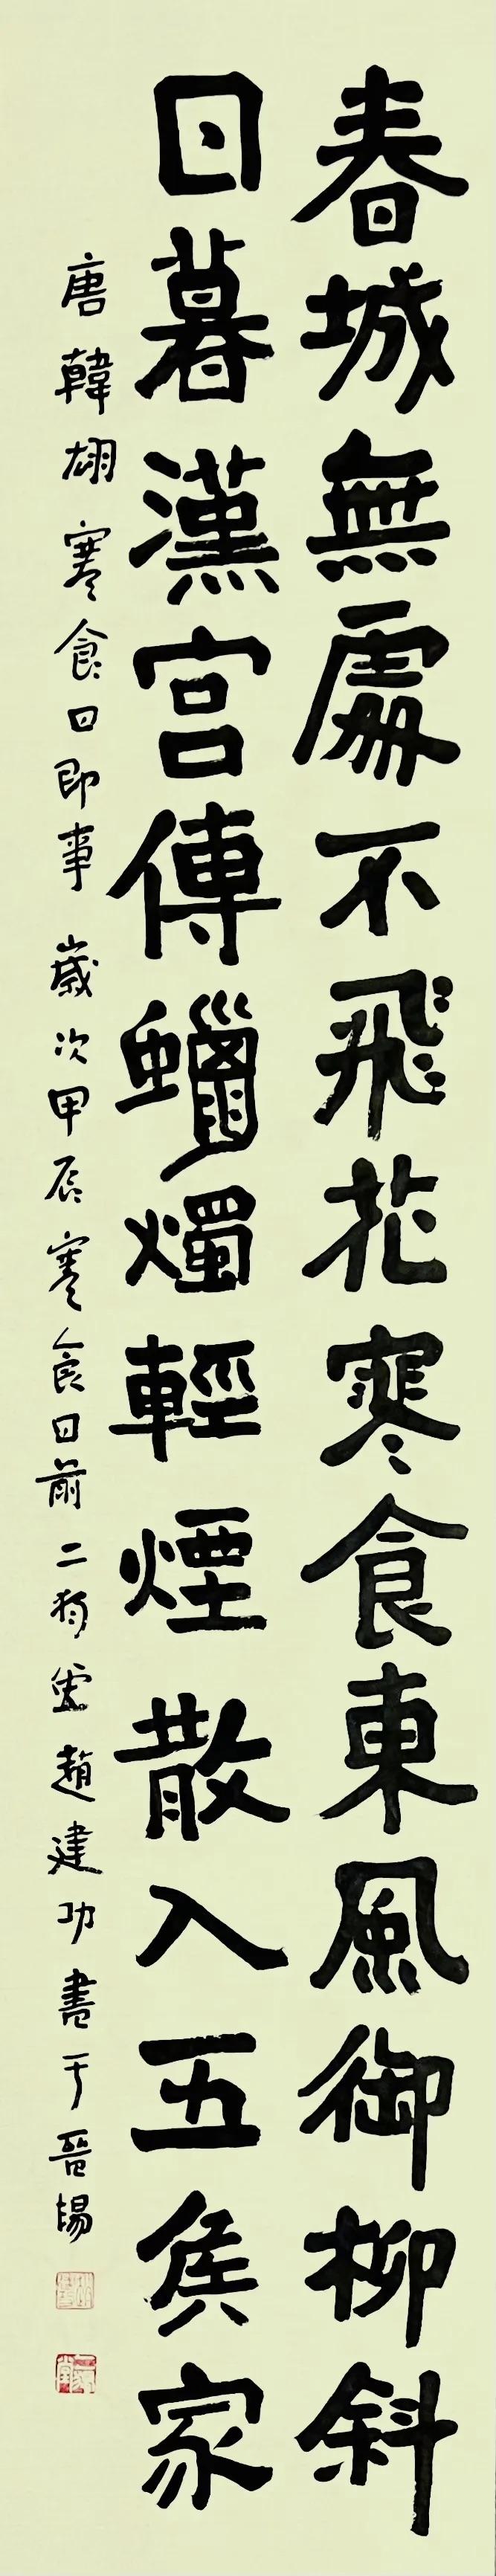 春城無處不飛花寒食東風御柳斜
日暮漢宮傳蠟燭輕煙散入五侯家
唐韓翃寒食日即事 歲次甲辰寒食日前二 趙建功書于晉陽